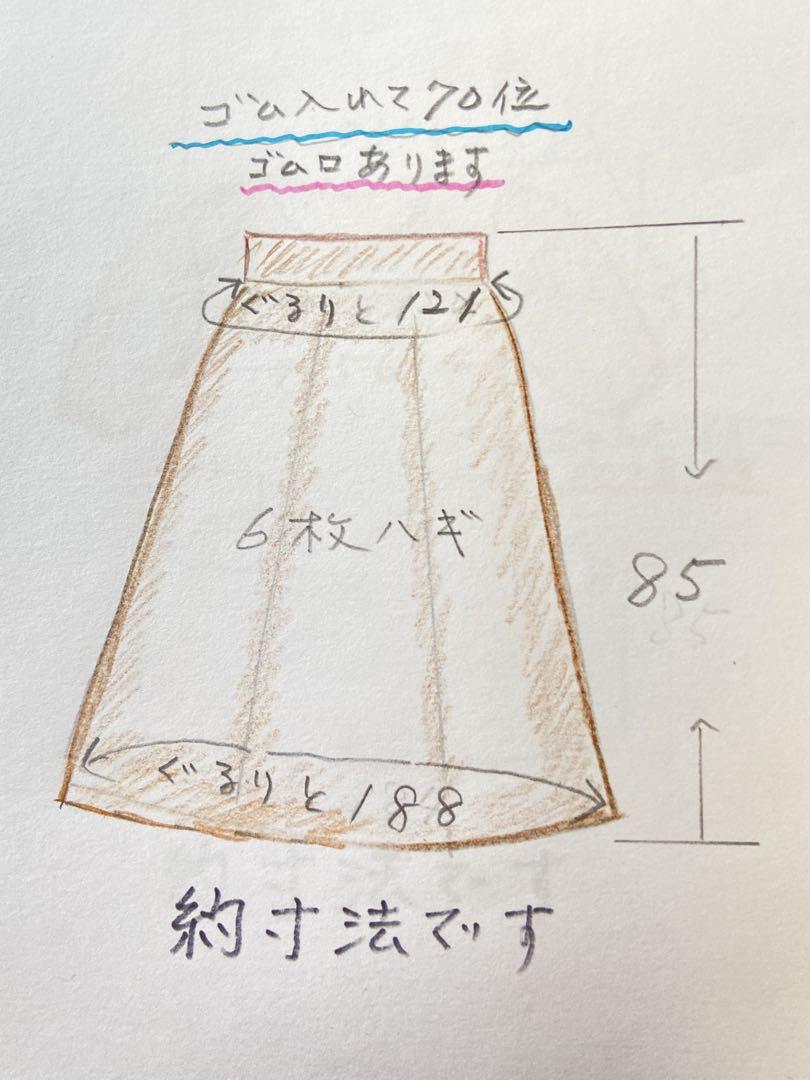 ゴム入れて70位
ゴム口あります
ぐるりと121
6枚ハギ
85
ぐるりと188
約寸法です